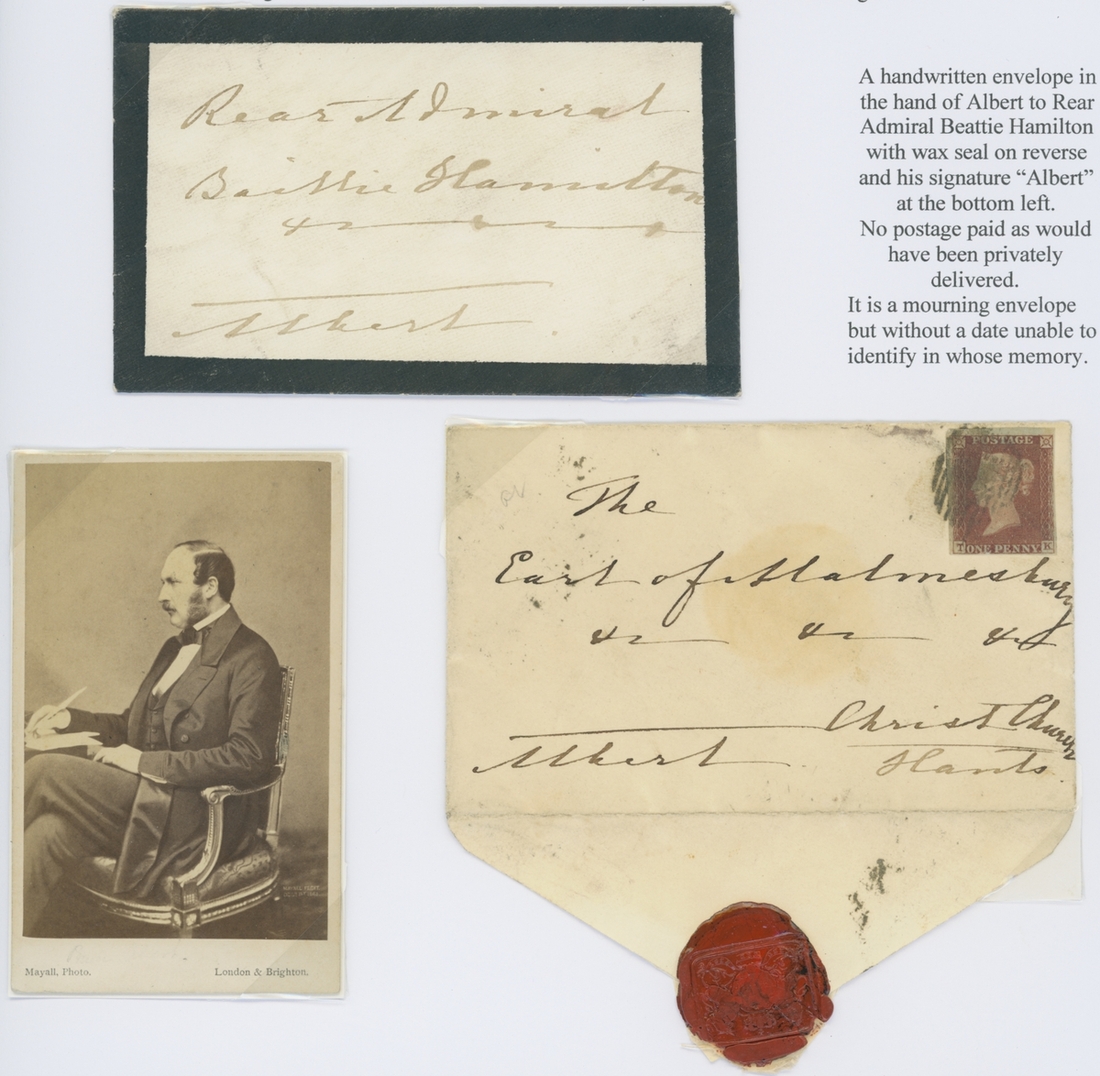 Rear Admiral
Baillie Hamilton
&c
Albert.
A handwritten envelope in
the hand of Albert to Rear
Admiral Beattie Hamilton
with wax seal on reverse
and his signature “Albert”
at the bottom left.
No postage paid as would
have been privately
delivered.
It is a mourning envelope
but without a date unable to
identify in whose memory.
POSTAGE
T ONE PENNY K
The
Earl of Malmesbury
&c &c &c
Christ Church
Albert Hants.
Mayall, Photo. London & Brighton.